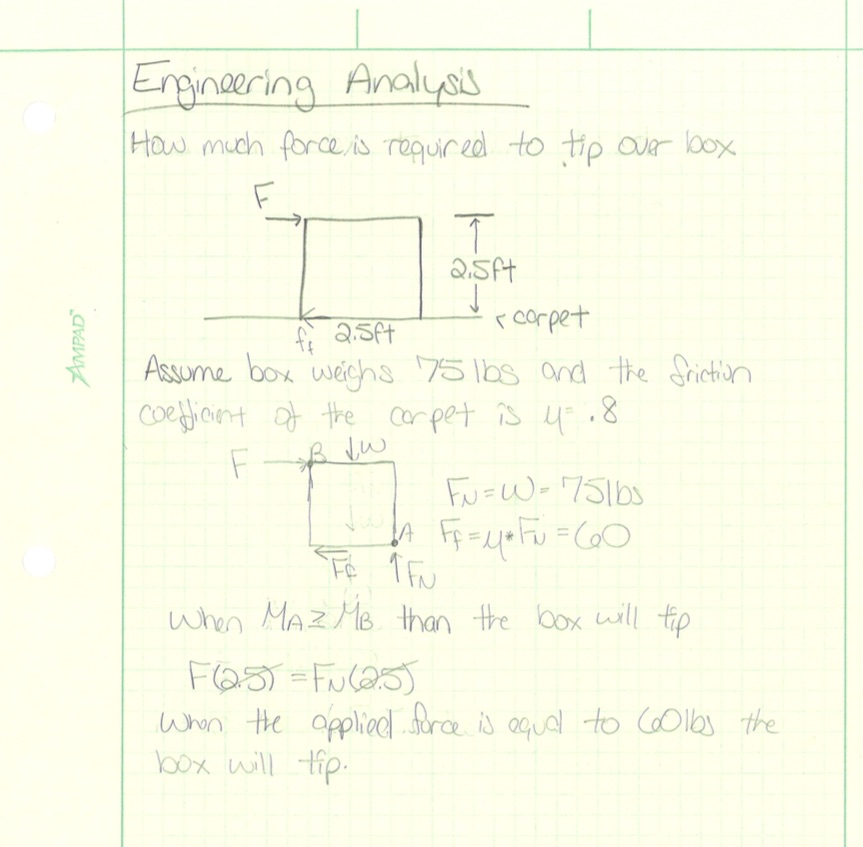 Engineering Analysis
How much force is required to tip over box
F
2.5ft
carpet
ff 2.5ft
AMPAD™
Assume box weighs 75 lbs and the friction
coefficient of the carpet is μ= .8
F B W
FN = W = 75lbs
A Ff = μ * FN = 60
Ff FN
When MA ≥ MB than the box will tip
F(2.5) = FN(2.5)
When the applied force is equal to 60lbs the
box will tip.